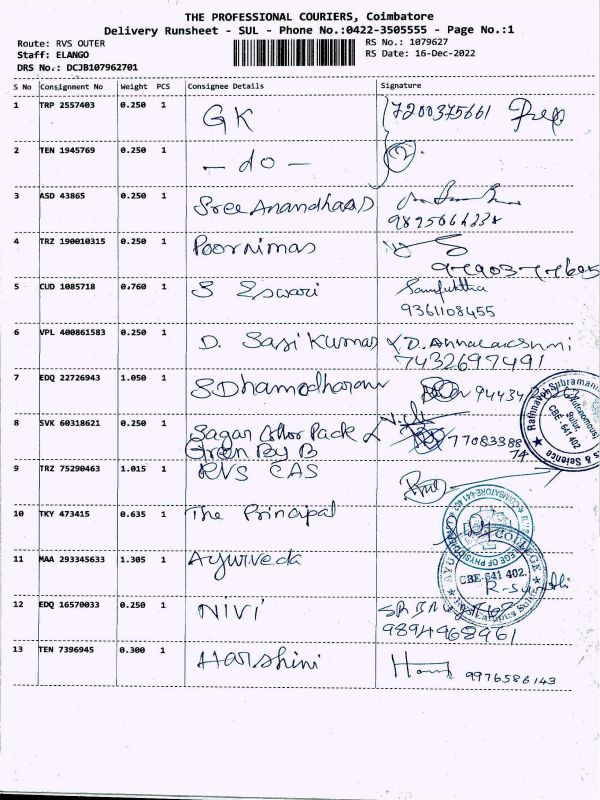 THE PROFESSIONAL COURIERS, Coimbatore
Delivery Runsheet - SUL - Phone No.:0422-3505555 - Page No.:1
Route: RVS OUTER
Staff: ELANGO
DRS No.: DCJB107962701
RS No.: 1079627
RS Date: 16-Dec-2022
S No Consignment No Weight PCS Consignee Details Signature
1 TRP 2557403 0.250 1 GK 7200375661
2 TEN 1945769 0.250 1 - do -
3 ASD 43865 0.250 1 Sree Anandhaas
4 TRZ 190010315 0.250 1 Poornimas
5 CUD 1085718 0.760 1 S Eswari
9361108455
6 VPL 400861583 0.250 1 D. Sasi Kumar D. Annalakshmi
7432697491
7 EDQ 22726943 1.050 1 S Dhamodharan 94434
8 SVK 60318621 0.250 1 Sagar Pack 77083388
Green By B 74
9 TRZ 75290463 1.015 1 RVS CAS
10 TKY 473415 0.635 1 The Principal
11 MAA 293345633 1.305 1 Ayurveda
CBE-641 402.
12 EDQ 16570033 0.250 1 NIVI
9894968961
13 TEN 7396945 0.300 1 Harshini 9976586143